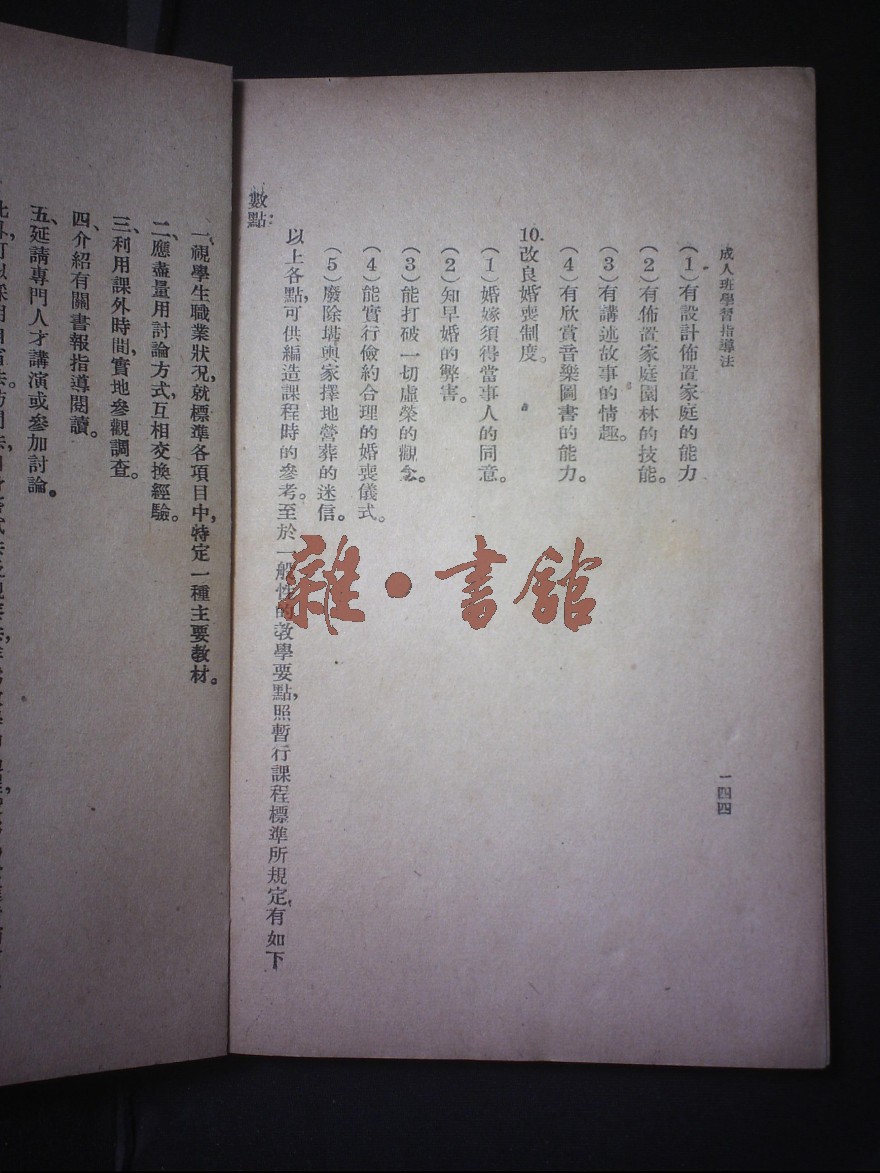 成人班學習指導法
一四四
（1）有設計佈置家庭的能力
（2）有佈置家庭園林的技能。
（3）有講述故事的情趣。
（4）有欣賞音樂圖書的能力。
10.改良婚喪制度。
（1）婚嫁須得當事人的同意。
（2）知早婚的弊害。
（3）能打破一切虛榮的觀念。
（4）能實行儉約合理的婚喪儀式。
（5）廢除堪輿家擇地營葬的迷信。
以上各點，可供編造課程時的參考。至於一般性的教學要點，照暫行課程標準所規定，有如下
數點：
一、視學生職業狀況，就標準各項目中，特定一種主要教材。
二、應盡量用討論方式，互相交換經驗。
三、利用課外時間，實地參觀調查。
四、介紹有關書報指導閱讀。
五、延請專門人才講演或參加討論。
雜·書館